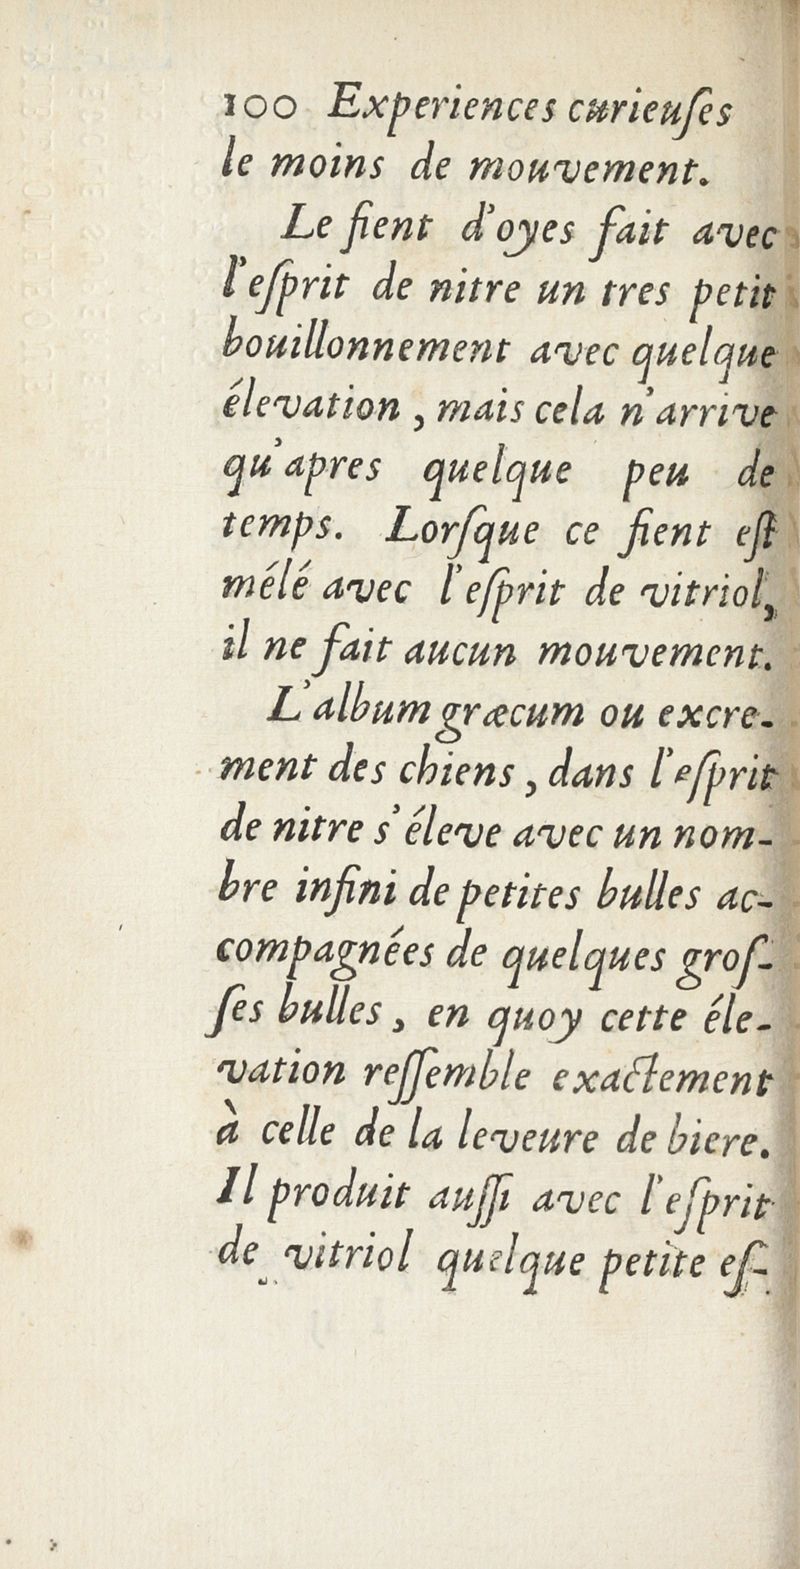 100 Experiences curieuſes
le moins de mouvement.
Le fient d'oyes fait avec
l'eſprit de nitre un tres petit
bouillonnement avec quelque
élevation , mais cela n'arrive
qu'apres quelque peu de
temps. Lorſque ce fient eſt
mélé avec l'eſprit de vitriol,
il ne fait aucun mouvement.
L'album græcum ou excre-
ment des chiens , dans l'eſprit
de nitre s'éleve avec un nom-
bre infini de petites bulles ac-
compagnées de quelques groſ-
ſes bulles , en quoy cette éle-
vation reſſemble exactement
à celle de la leveure de biere.
Il produit auſſi avec l'eſprit
de vitriol quelque petite eſ-